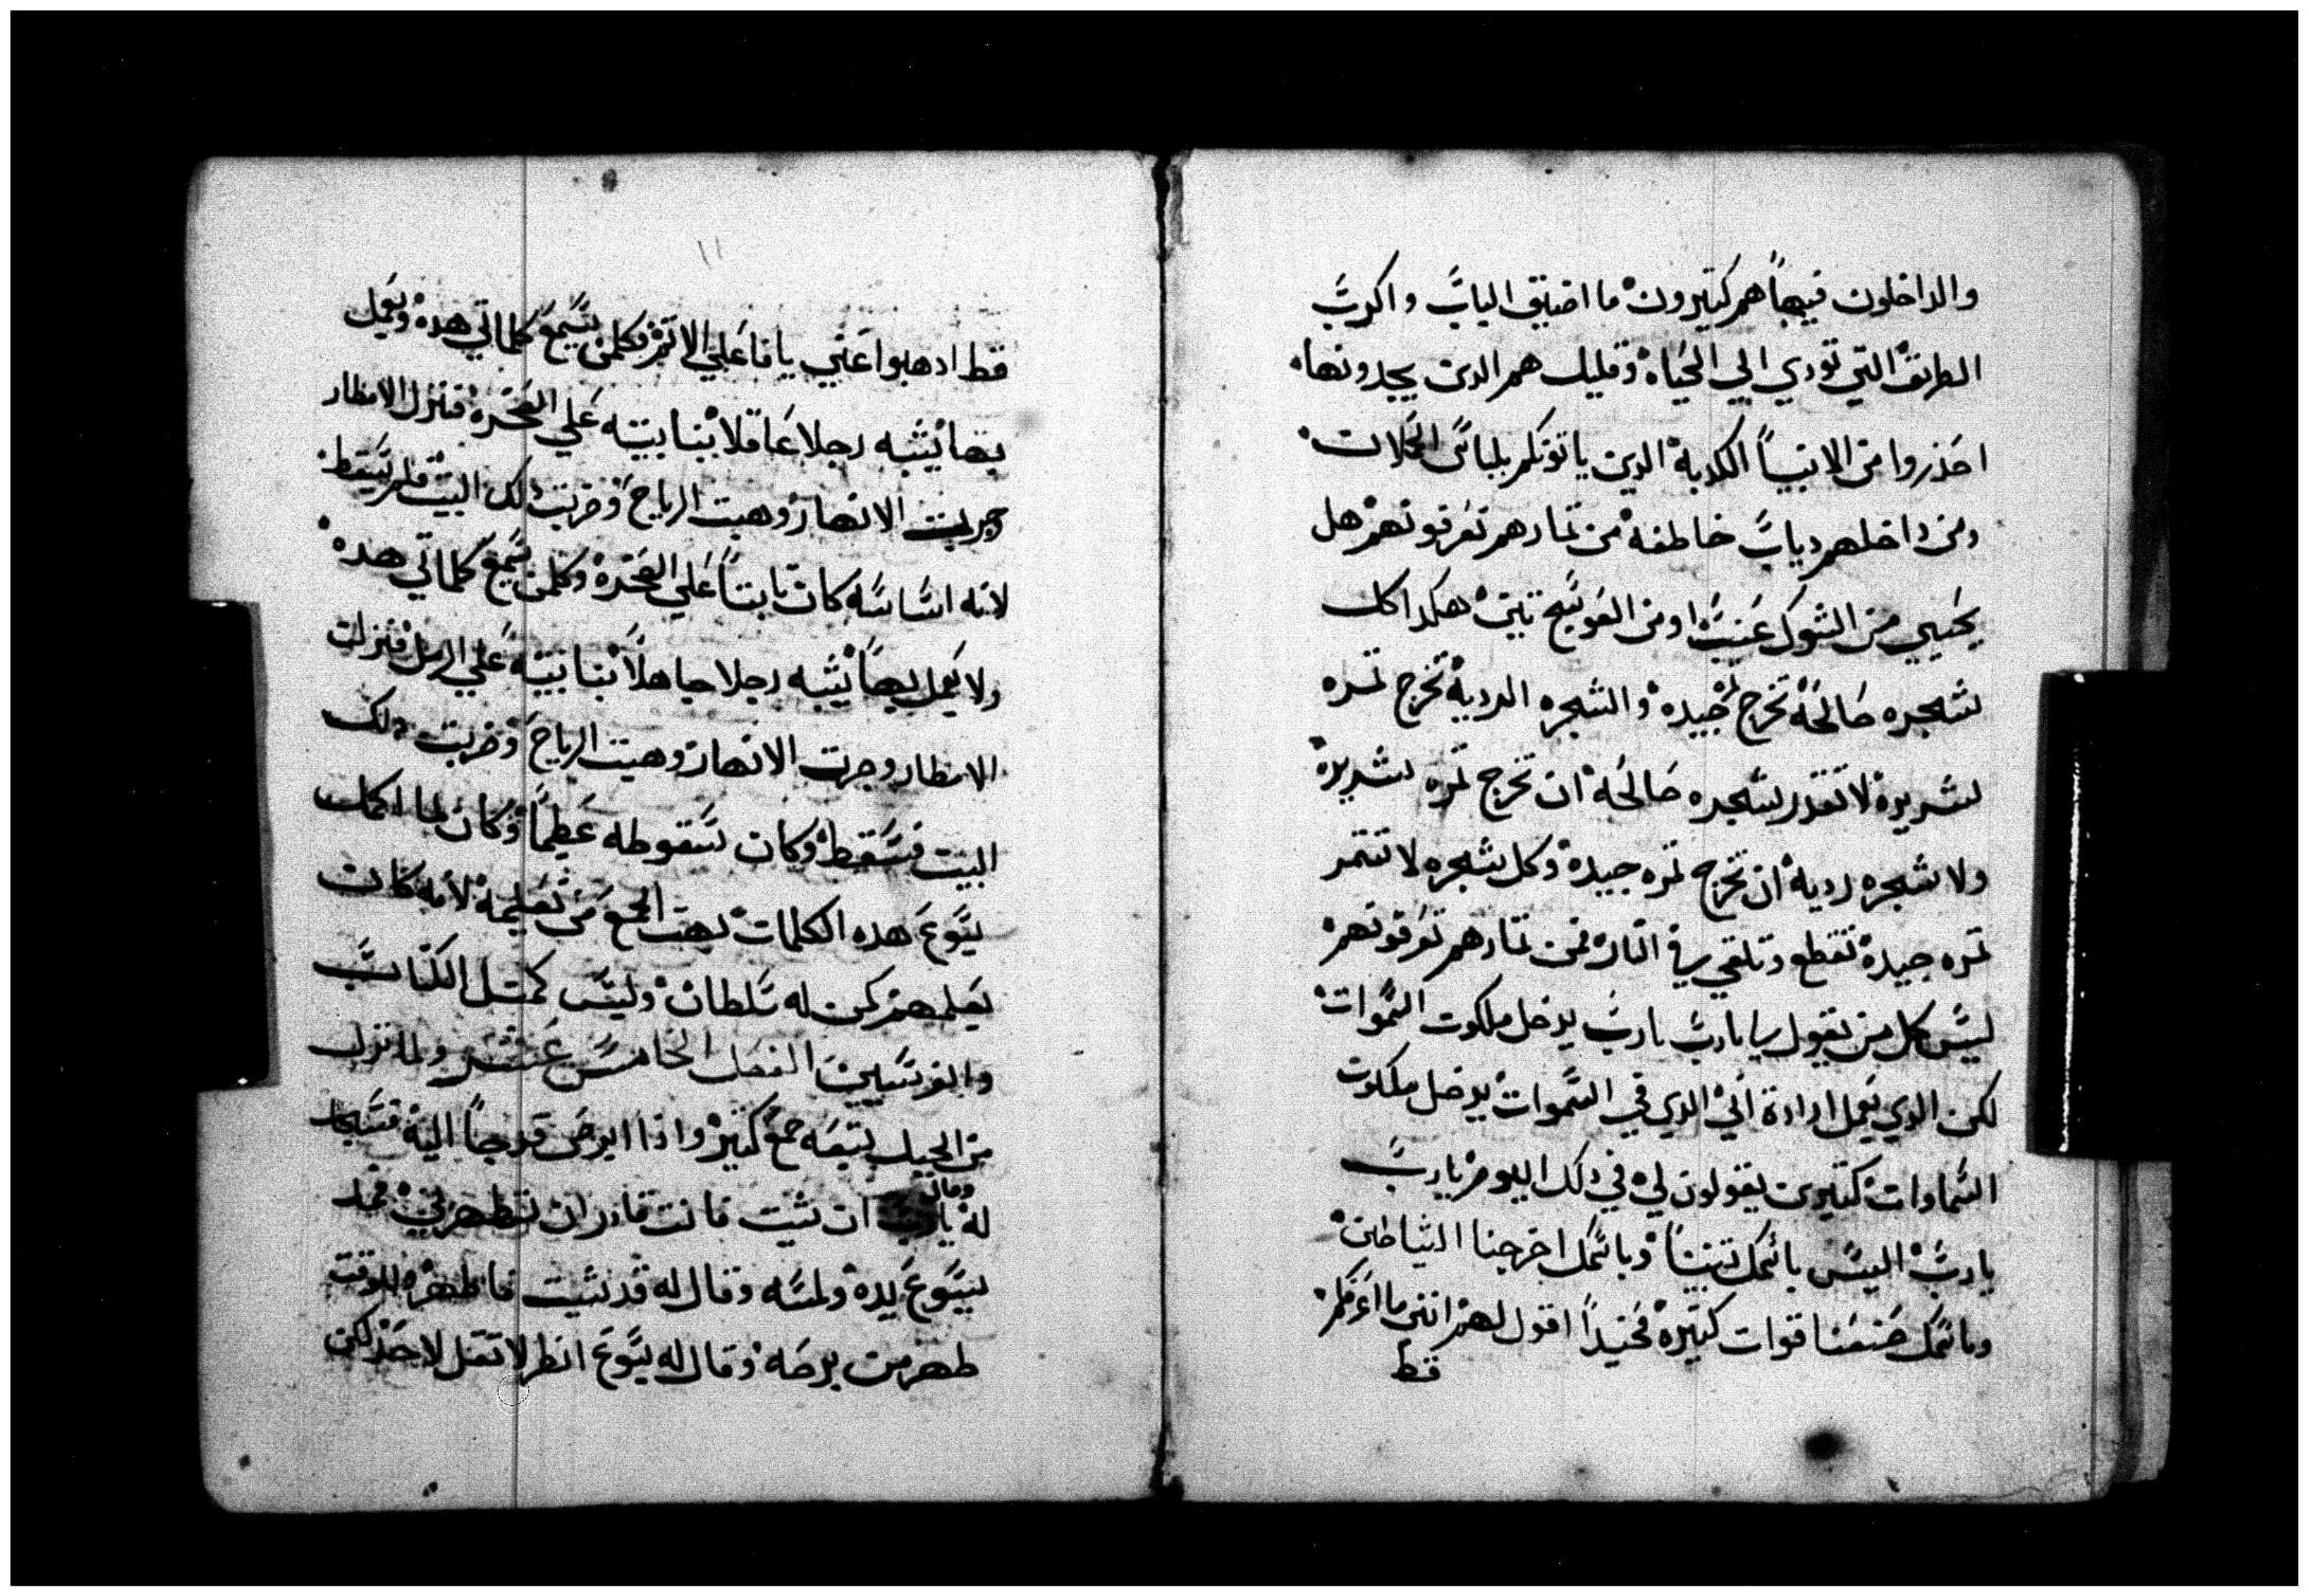 والداخلون فيها هم كتيرون ما اضيق الباب واكرب
الطريق التي تودي الي الحياه وقليل هم الدين يجدونها
احذروا من الانبيا الكدبة الدين ياتونكم بلباس الحملان
ومن داخلهم دياب خاطفة من تمارهم تعرفونهم هل
يجني من الشوك عنب او من العوسج تين هكدا كل
شجره صالحة تخرج جيده والشجره الرديه تخرج تمره
شريره لا تقدر شجره صالحة ان تخرج تمره شريره
ولا شجره رديه ان تخرج تمره جيده وكل شجره لا تتمر
تمره جيده تقطع وتلقي في النار فمن تمارهم تعرفونهم
ليس كل من يقول لي يارب يارب يدخل ملكوت السموات
لكن الدي يعمل ارادة ابي الدي في السموات يدخل ملكوت
السماوات كتيرين يقولون لي في دلك اليوم يارب
يارب اليس باسمك تنبينا وباسمك اخرجنا الشياطين
وباسمك صنعنا قوات كتيره فحنيدا اقول لهم انني ما اعرفكم
قط
١١
قط ادهبوا عني يا فاعلي الاتم فكلمن يسمع كلماتي هده ويعمل
بها يشبه رجلا عاقلا بنا بيته علي الصخره فنزل الامطار
وجريت الانهار وهبت الرياح وضربت دلك البيت فلم يسقط
لانه اساسه كان تابتا علي الصخره وكلمن يسمع كلماتي هده
ولا يعمل بها يشبه رجلا جاهلا بنا بيته علي الرمل فنزلت
الامطار وجرت الانهار وهبت الرياح وضربت دلك
البيت فسقط وكان سقوطه عظيما وكان لما اكمل
يسوع هده الكلمات بهت الجمع من تعليمه لانه كان
يعلمهم كمن له سلطان وليس كمتل الكتاب
والفريسيين الفصل الخامس عشر ولما نزل
من الجبل تبعه جمع كتير واذا ابرص قد جا اليه فسجد
وقال
له يارب ان شيت فانت قادر ان تطهرني فمد
يسوع يده ولمسه وقال له قد شيت فاطهر للوقت
طهر من برصه وقال له يسوع انظر لا تقل لاحد لكن